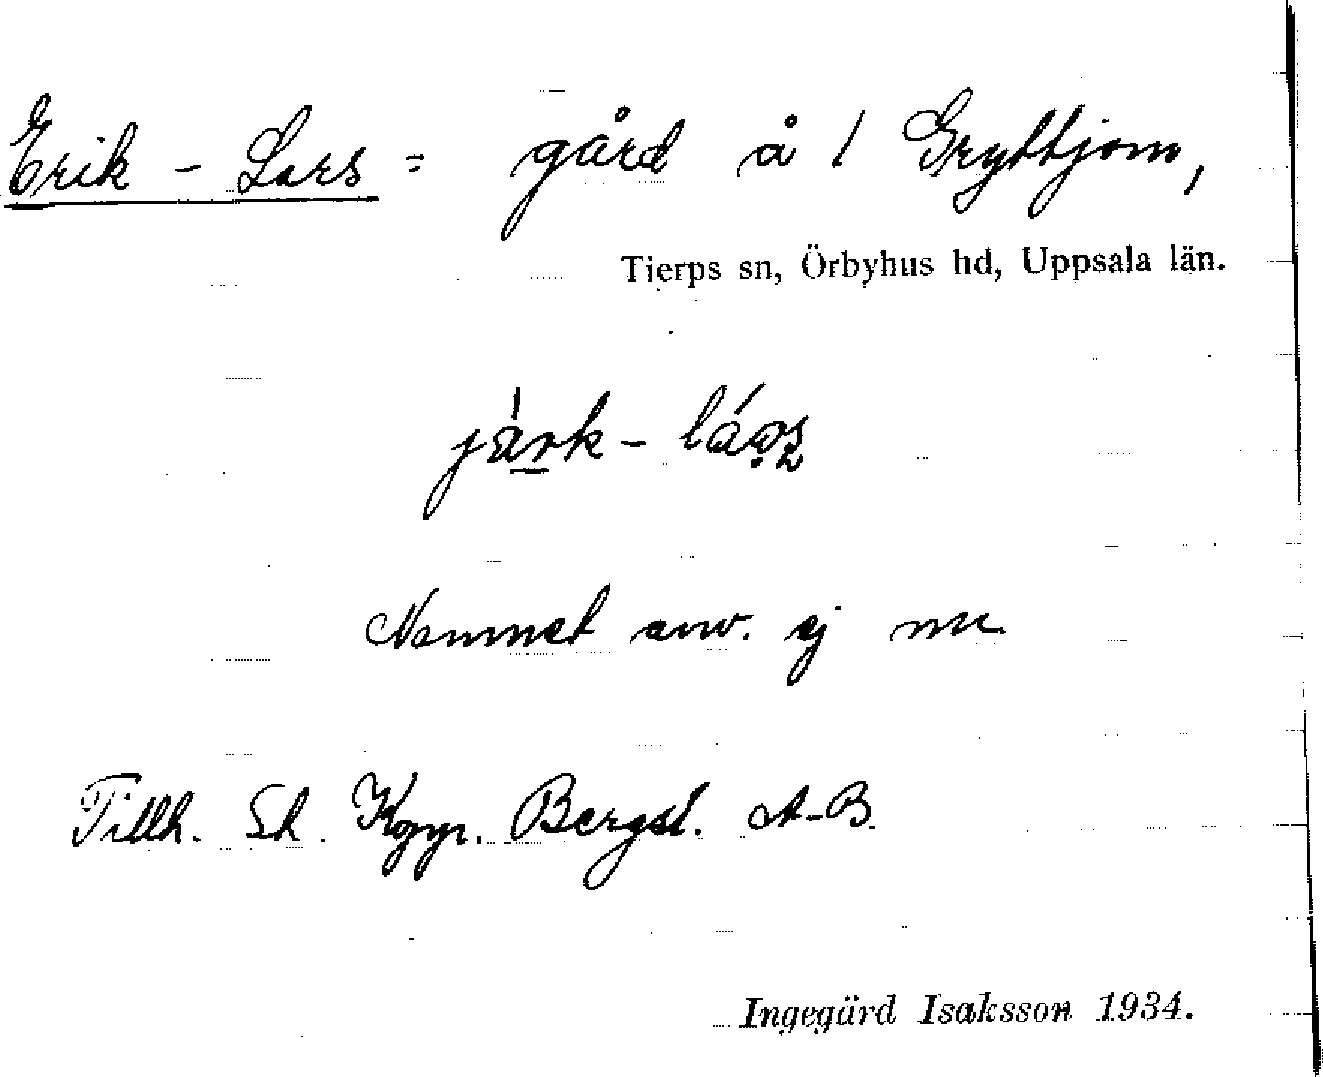 Erik - Lars = gård å 1 Gryttjom,
Tierps sn, Örbyhus hd, Uppsala län.
Namnet anv. ej nu
Tillh. St. Koppr. Bergsl. A-B.
Ingegärd Isaksson 1934.